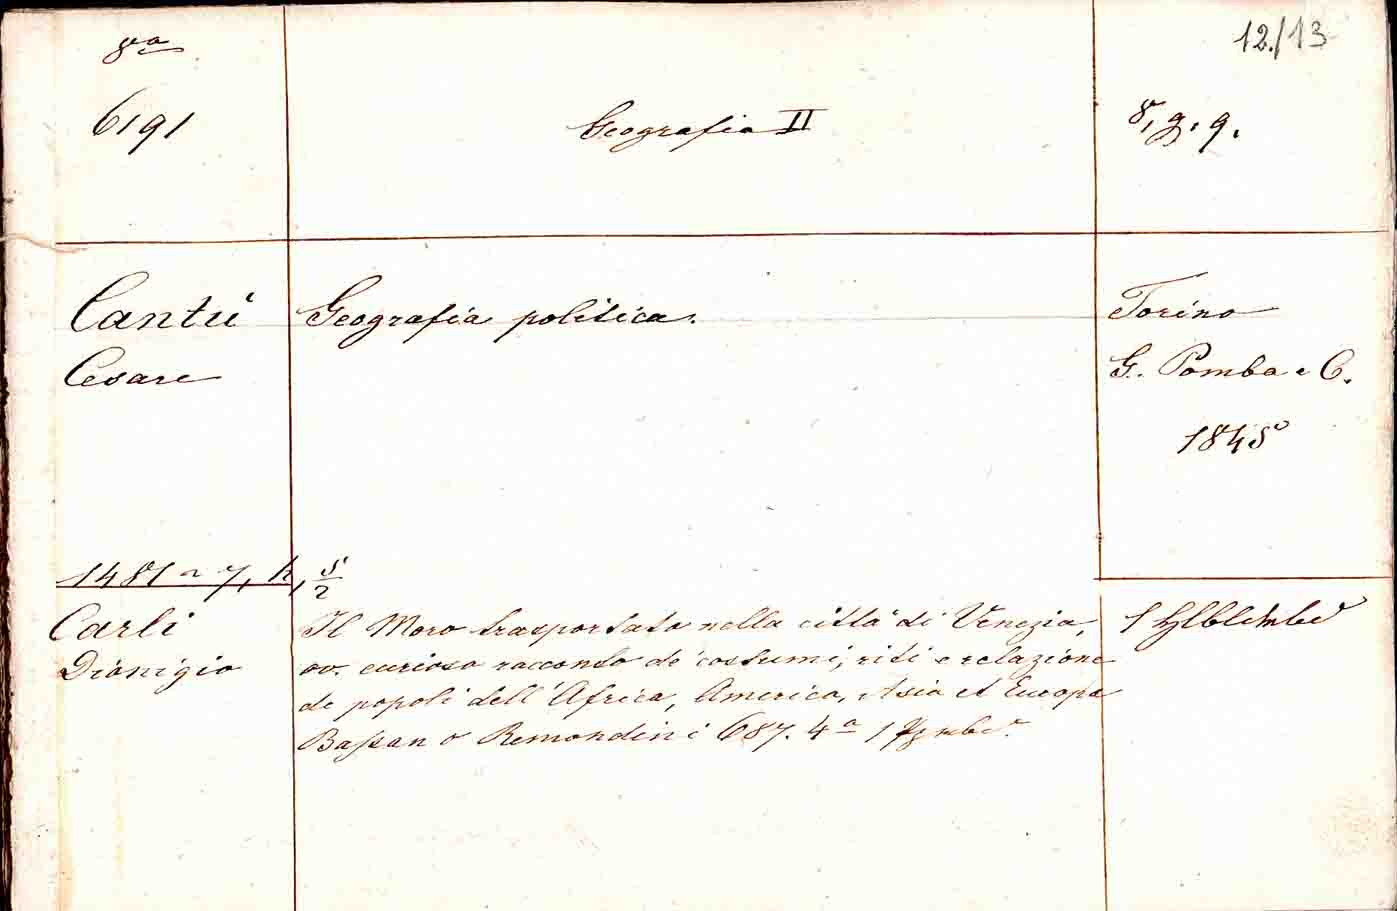 8ª
12./13
6191
Geografia II
8, g. 9.
Cantù
Geografia politica.
Torino
Cesare
G. Pomba e C.
1845
1481 ~ 7, h, 5/2
Carli
Il Moro trasportato nella città di Venezia,
Dionigio
ov. curioso racconto de' costumi, riti e relazione
de popoli dell'Africa, America, Asia et Europa
Bassano Remondini 687. 4ª 1
1